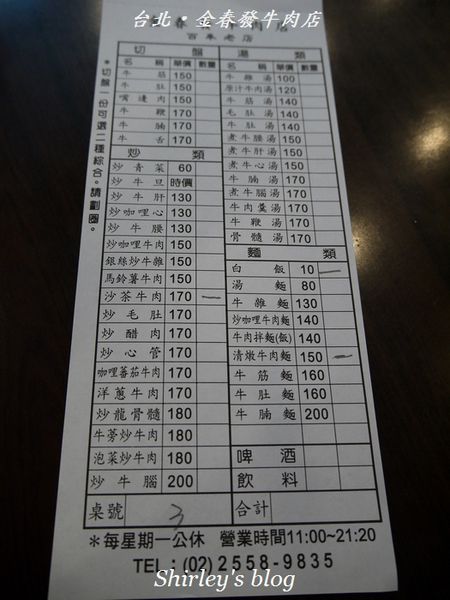 台北・金春發牛肉店
春 牛肉店
百年老店
*切盤一份可選二種綜合。請劃圈。
切 盤
名 稱 單價 數量
牛筋 150
牛肚 150
嘴邊肉 150
牛鞭 170
牛腩 170
牛舌 170
炒 類
炒青菜 60
炒牛旦 時價
炒牛肝 130
炒咖哩心 130
炒牛腰 130
炒咖哩牛肉 150
銀絲炒牛雜 150
馬鈴薯牛肉 150
沙茶牛肉 170 一
炒毛肚 170
炒醋肉 170
炒心管 170
咖哩蕃茄牛肉 170
洋蔥牛肉 170
炒龍骨髓 180
牛蒡炒牛肉 180
泡菜炒牛肉 180
炒牛腦 200
桌號 3
湯 類
名 稱 單價 數量
牛雜湯 100
原汁牛肉湯 120
牛筋湯 140
毛肚湯 140
牛肚湯 140
煮牛腰湯 150
煮牛肝湯 150
煮牛心湯 150
牛腩湯 170
煮牛腦湯 170
牛肉羹湯 170
牛鞭湯 170
骨髓湯 170
麵 類
白飯 10 一
湯麵 80
牛雜麵 130
炒咖哩牛肉麵 140
牛肉拌麵(飯) 140
清燉牛肉麵 150 一
牛筋麵 160
牛肚麵 160
牛腩麵 200
啤酒
飲料
合計
*每星期一公休 營業時間11:00~21:20
TEL:(02)2558-9835
Shirley's blog